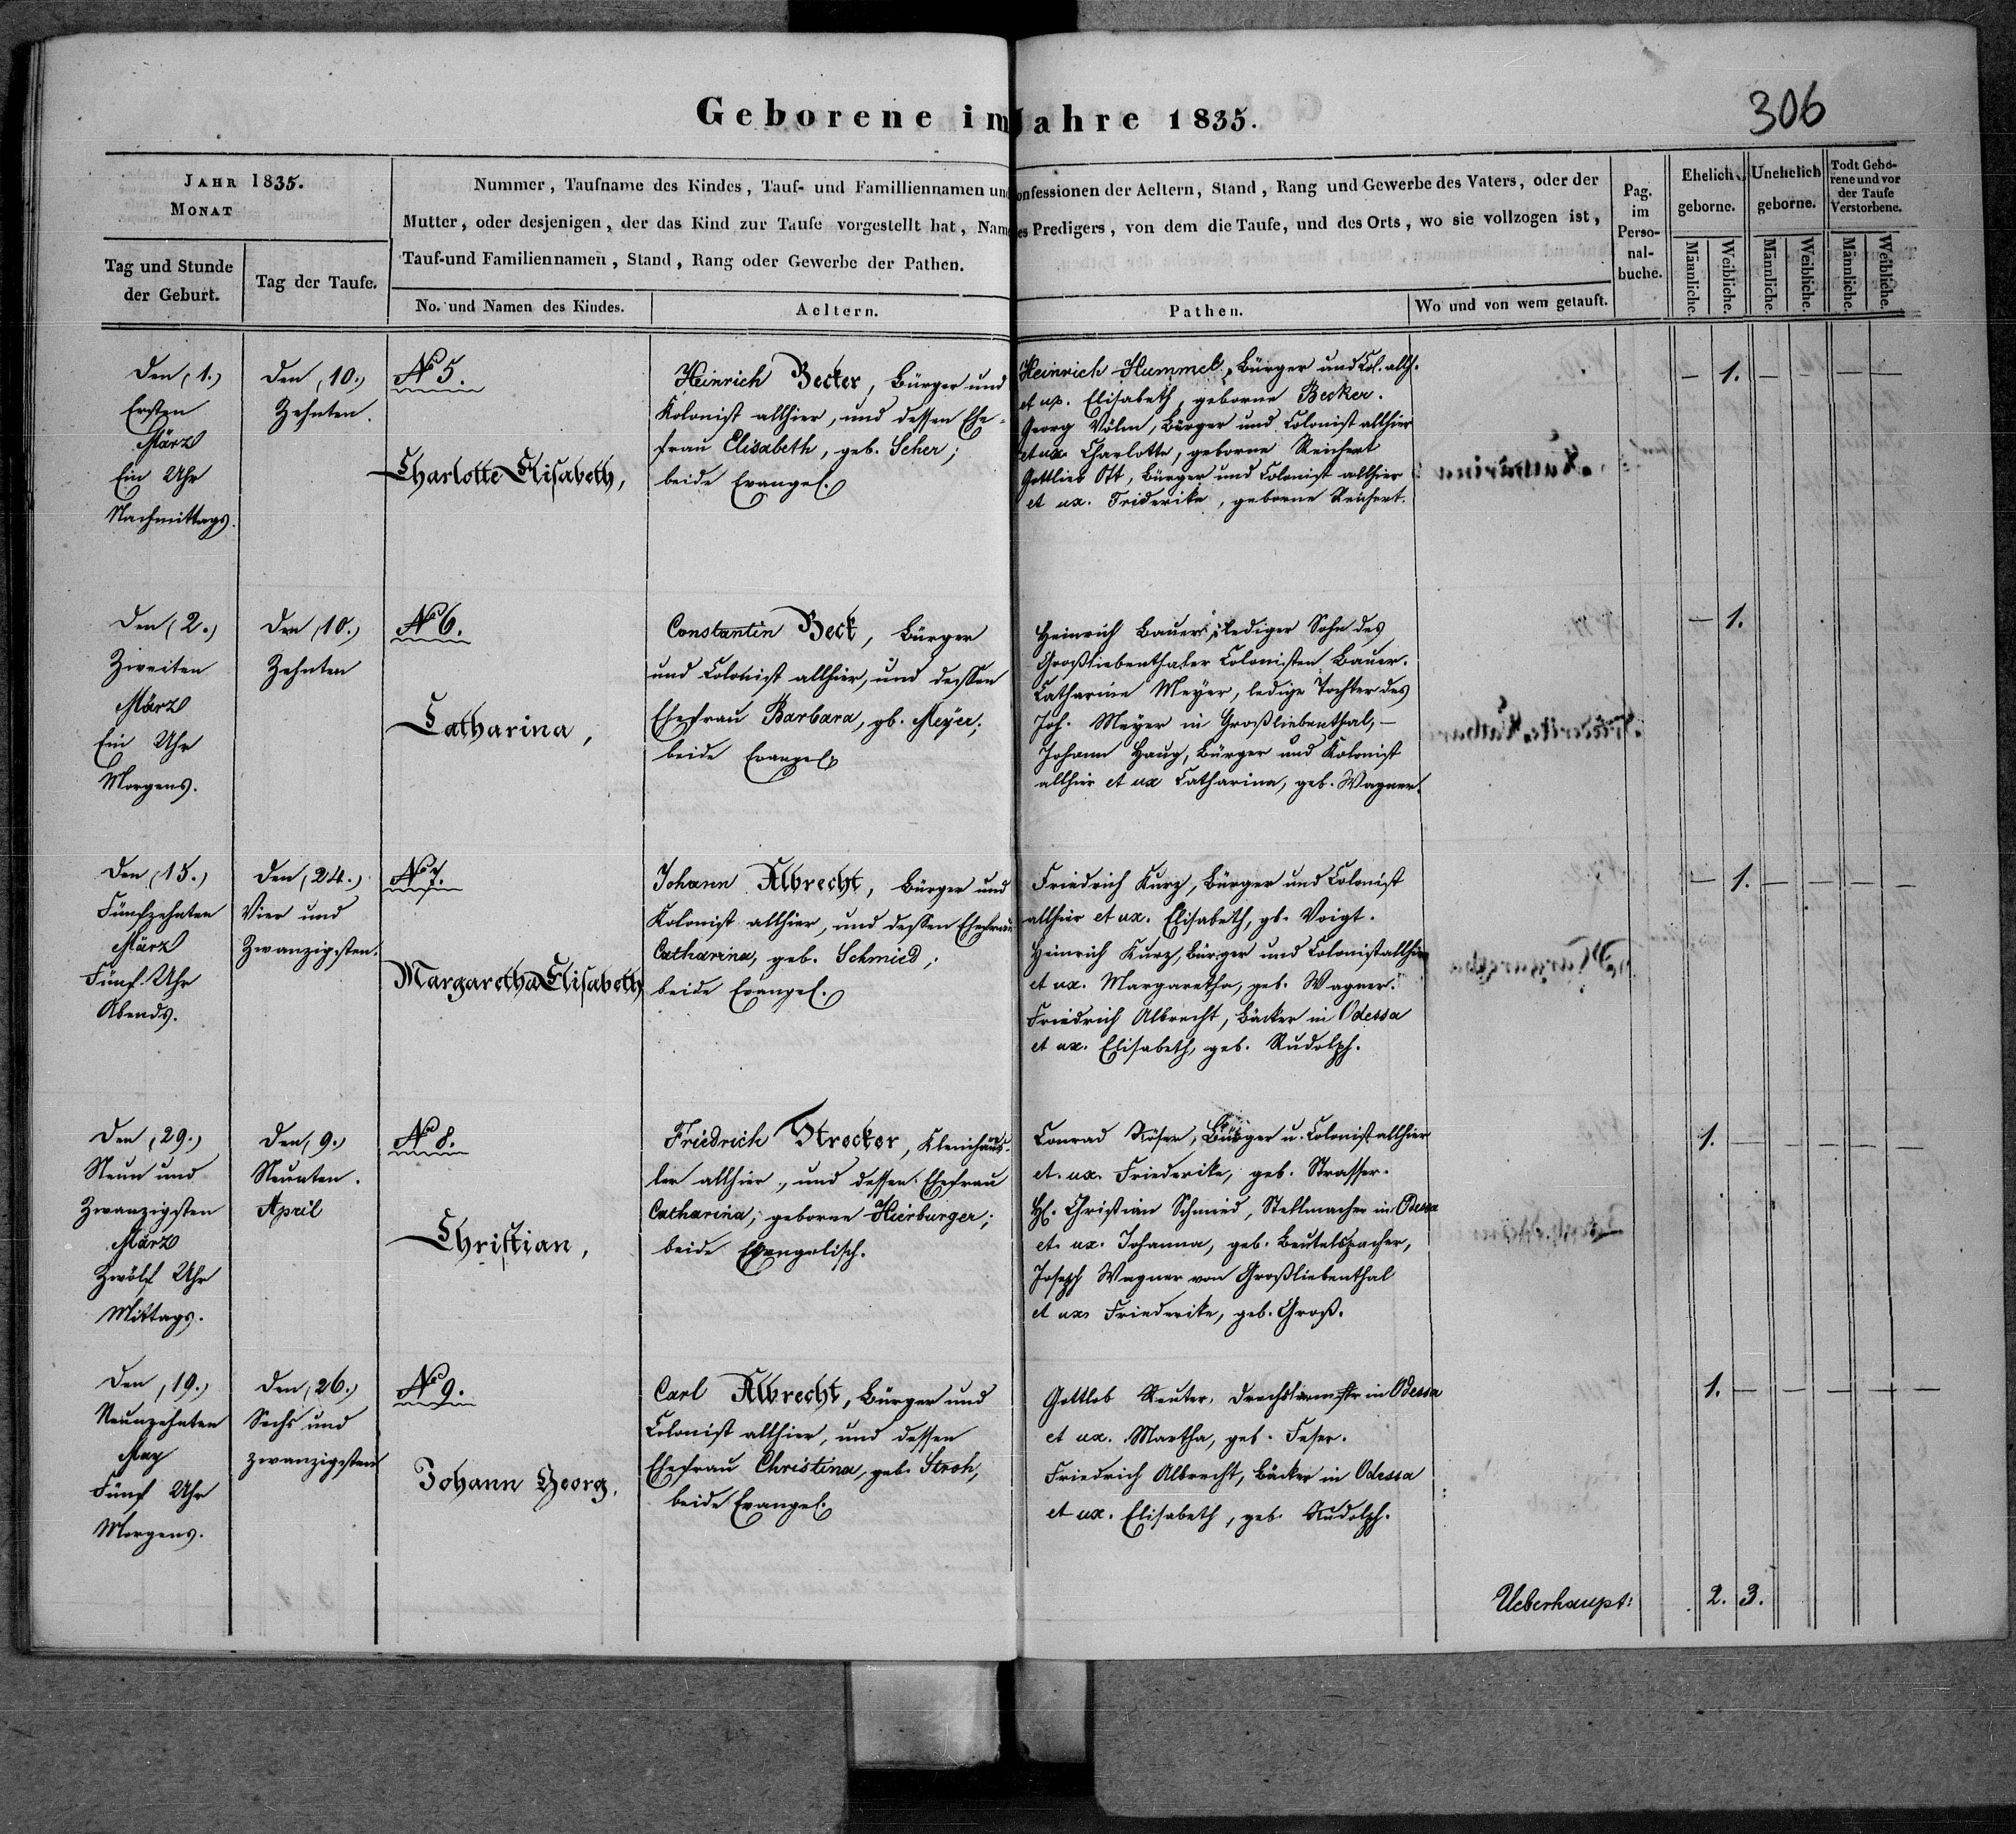 Geborene im Jahre 1835.
306
JAHR 1835.
MONAT
Tag und Stunde
der Geburt.
Tag der Taufe.
Nummer, Taufname des Kindes, Tauf- und Familliennamen und Confessionen der Aeltern, Stand, Rang und Gewerbe des Vaters, oder der
Mutter, oder desjenigen, der das Kind zur Taufe vorgestellt hat, Name des Predigers, von dem die Taufe, und des Orts, wo sie vollzogen ist,
Tauf-und Familiennamen, Stand, Rang oder Gewerbe der Pathen.
No. und Namen des Kindes.
Aeltern.
Pathen.
Wo und von wem getauft.
Pag.
im
Perso-
nal-
buche.
Ehelich
geborne.
Unehelich
geborne.
Todt Gebo-
rene und vor
der Taufe
Verstorbene.
Männliche.
Weibliche.
Männliche.
Weibliche.
Männliche.
Weibliche.
Den (1.)
Ersten
März
Ein Uhr
Nachmittags.
Den (10.)
Zehnten.
No 5.
Charlotte Elisabeth,
Heinrich Becker, Bürger und
Kolonist allhier, und dessen Ehe-
frau Elisabeth, geb. Scher;
beide Evangel.
Heinrich Hummel, Bürger und Col. allh.
et ux. Elisabeth, geborne Becker.
Georg Völm, Bürger und Colonist allhier
et ux. Charlotte, geborne Reichert
Gottlieb Ott, Bürger und Colonist allhier
et ux. Friderike, geborne Reichert.
— 1. — — — —
Den (2.)
Zweiten
März
Ein Uhr
Morgens.
Den (10.)
Zehnten
No 6.
Catharina,
Constantin Beck, Bürger
und Colonist allhier, und dessen
Ehefrau Barbara, gb. Meyer;
beide Evangel.
Heinrich Bauer, lediger Sohn des
Großliebenthaler Colonisten Bauer.
Catharine Meyer, ledige Tochter des
Joh. Meyer in Großliebenthal, —
Johann Haug, Bürger und Kolonist
allhier et ux Catharina, geb. Wagner.
— 1.
Den (15.)
Fünfzehnten
März
Fünf Uhr
Abends.
Den (24.)
Vier und
Zwanzigsten.
No 7.
Margaretha Elisabeth
Johann Albrecht, Bürger und
Kolonist allhier, und dessen Ehefrau
Catharina, geb. Schmied;
beide Evangel.
Friedrich Kurz, Bürger und Colonist
allhier et ux. Elisabeth, gb. Voigt.
Heinrich Kurz, Bürger und Colonist allhier
et ux. Margaretha, geb. Wagner.
Friedrich Albrecht, Bäcker in Odessa
et ux. Elisabeth, geb. Rudolph.
— 1. — — — —
Den (29.)
Neun und
Zwanzigsten
März
Zwölf Uhr
Mittags.
Den (9.)
Neunten.
April
No 8.
Christian,
Friedrich Strecker, Kleinhäus-
ler allhier, und dessen Ehefrau
Catharina, geborne Hierburger;
beide Evangelisch.
Conrad Röser, Bürger u. Colonist allhier
et. ux. Friederike, geb. Strasser.
H. Christian Schmied, Stellmacher in Odessa
et. ux. Johanna, geb. Beutelspacher,
Joseph Wagner von Großliebenthal
et ux. Friederike, geb. Groß.
1. — — — — —
Den (19.)
Neunzehnten
May
Fünf Uhr
Morgens.
Den (26.)
Sechs und
zwanzigsten
No 9.
Johann Georg,
Carl Albrecht, Bürger und
Colonist allhier, und dessen
Ehefrau Christina, geb. Stroh,
beide Evangel.
Gottlob Reuter, in Odessa
et ux. Martha, geb. Feser.
Friedrich Albrecht, Bäcker in Odessa
et ux. Elisabeth, geb. Rudolph.
1. — — — — —
Ueberhaupt: 2. 3.